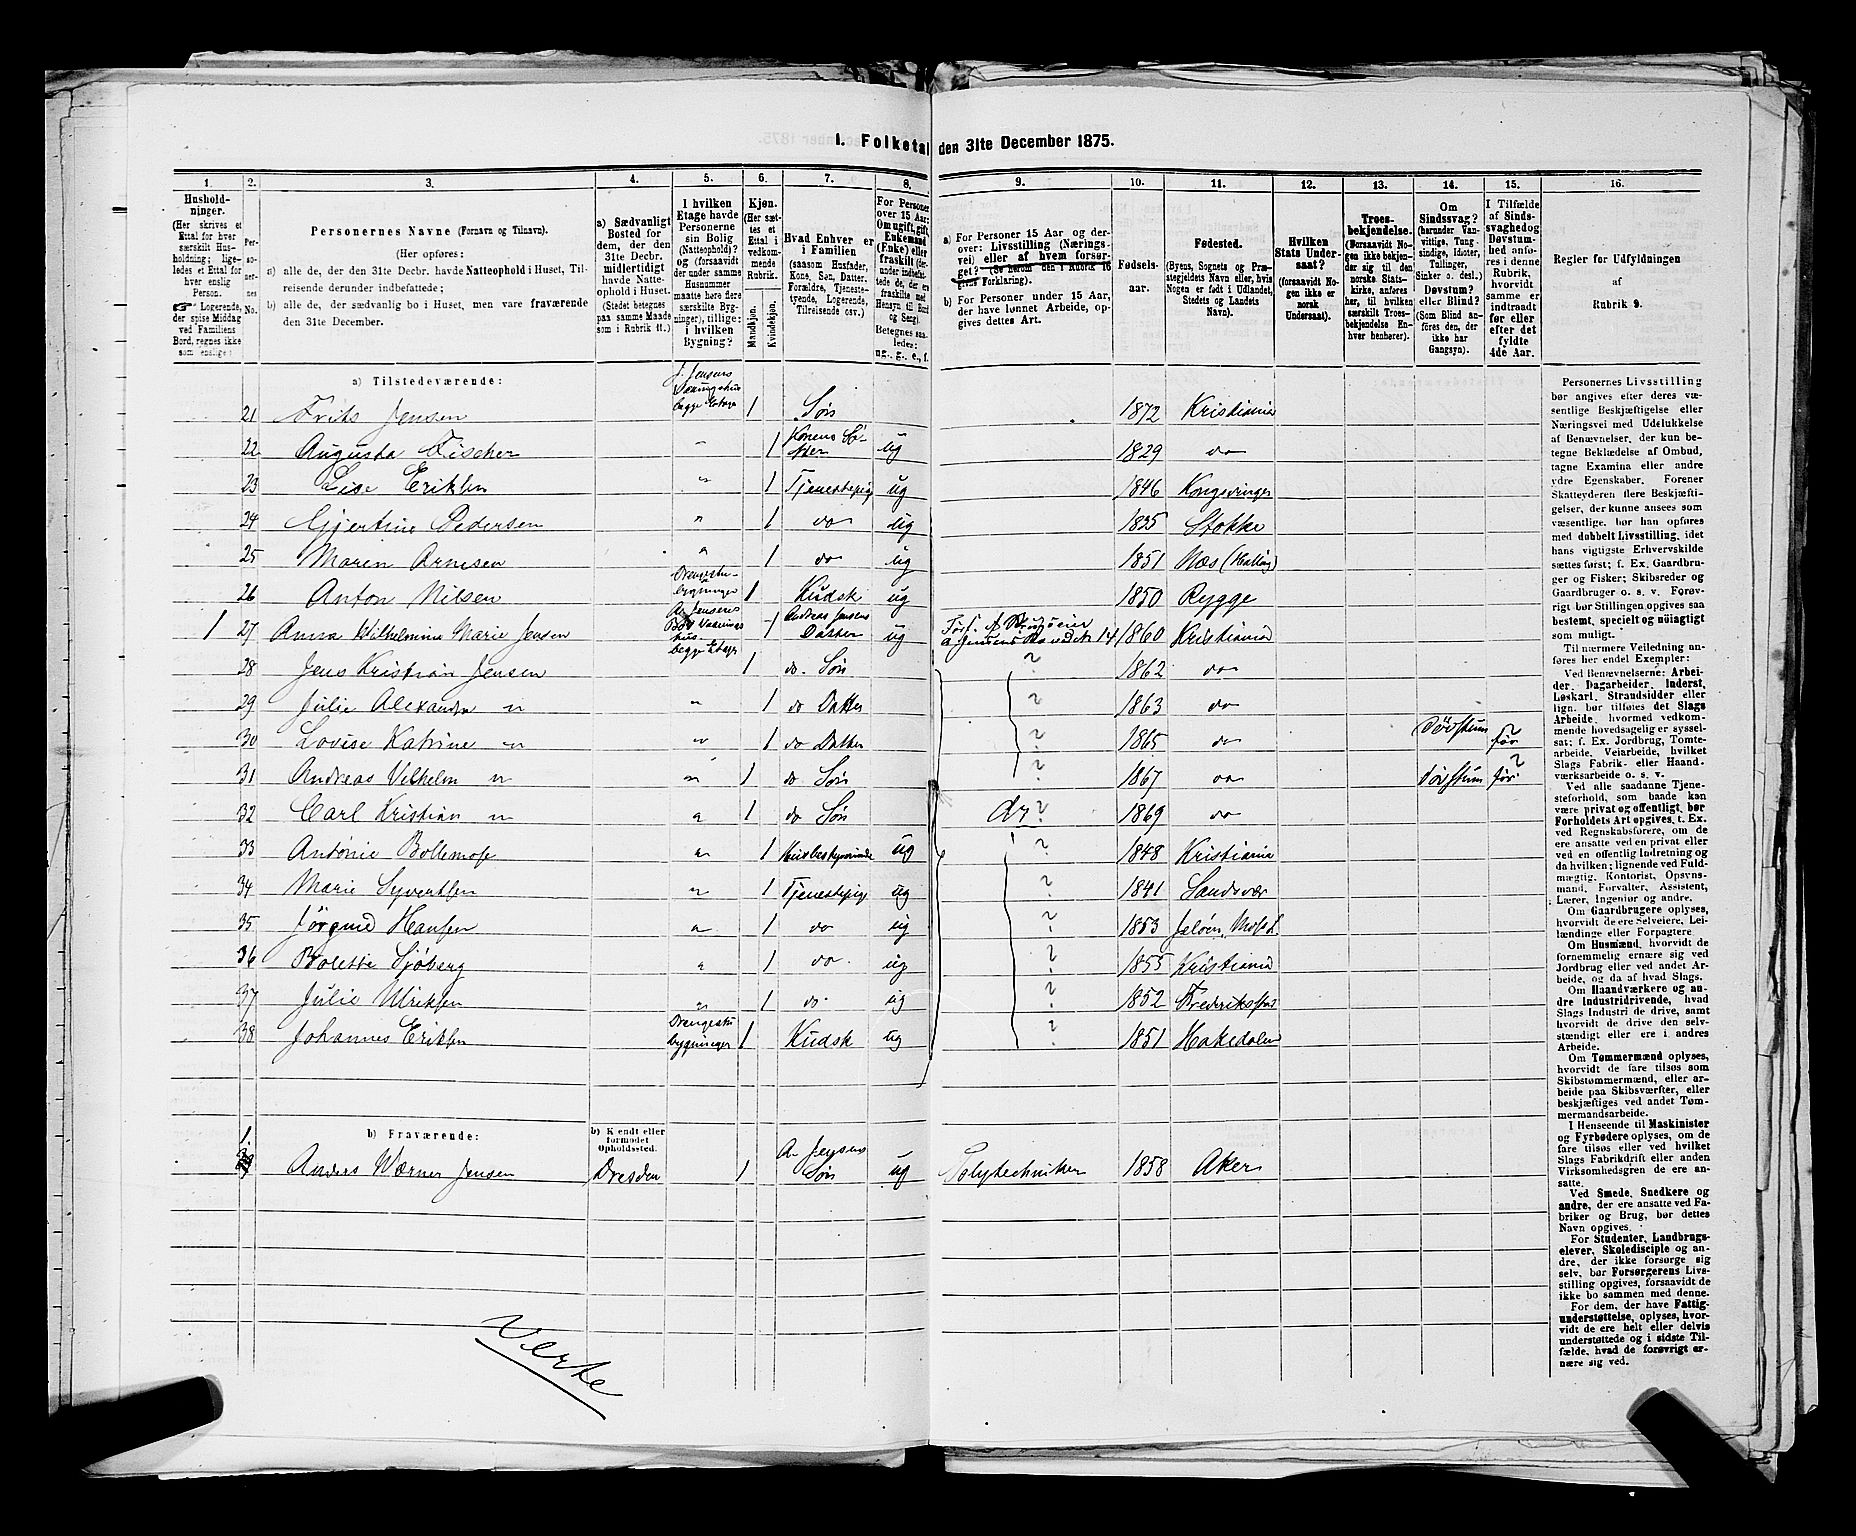 1. Folketal den 31te December 1875.
1. 2. 3. 4. 5. 6. 7. 8. 9. 10. 11. 12. 13. 14. 15. 16.
Hushold-
ninger.
(Her skrives et
Ettal for hver
særskilt Hus-
holdning; lige-
ledes et Ettal for
hver enslig
Person.
☞ Logerende,
der spise Middag
ved Familiens
Bord, regnes ikke
som enslige.)
Per-
so-
ner-
nes
No.
Personernes Navne (Fornavn og Tilnavn).
(Her opføres:
a) alle de, der den 31te Decbr. havde Natteophold i Huset, Til-
reisende derunder indbefattede;
b) alle de, der sædvanlig bo i Huset, men vare fraværende
den 31te December.
a) Sædvanligt
Bosted for
dem, der den
31te Decbr.
midlertidigt
havde Natte-
ophold i Huset.
(Stedet betegnes
paa samme Maade
som i Rubrik 11.)
I hvilken
Etage havde
Personerne
sin Bolig
(Natteophold)?
og (forsaavidt
der under samme
Husnummer
maatte høre flere
særskilte Byg-
ninger), tillige:
i hvilken
Bygning?
Kjøn.
(Her sæt-
tes et
Ettal i
vedkom-
mende
Rubrik.
Mandkjøn.
Kvindekjøn.
Hvad Enhver er
i Familien
(saasom Husfader,
Kone, Søn, Datter,
Forældre, Tjeneste-
tyende, Logerende,
Tilreisende osv.)
For Personer
over 15 Aar:
Om ugift, gift,
Enkemand
(Enke) eller
fraskilt
Betegnes saa-
ledes:
ug., g., e., f.
a) For Personer 15 Aar og der-
over: Livsstilling (Nærings-
vei) eller af hvem forsør-
get? (Se herom den i Rubrik 16
givne Forklaring).
b) For Personer under 15 Aar,
der have lønnet Arbeide, op-
gives dettes Art.
Fødsels-
aar.
Fødested.
(Byens, Sognets og Præ-
stegjeldets Navn eller, hvis
Nogen er født i Udlandet,
Stedets og Landets
Navn).
Hvilken
Stats Under-
saat?
(forsaavidt No-
gen ikke er
norsk
Undersaat).
Troes-
bekjendelse.
(Forsaavidt No-
gen ikke bekjen-
der sig til den
norske Stats-
kirke, anføres
her, til hvilken
særskilt Troes-
bekjendelse En-
hver henhører).
Om
Sindssvag?
(herunder Van-
vittige, Tung-
sindige, Idioter,
Tullinger,
Sinker o. desl.).
Døvstum?
eller Blind?
(Som Blind an-
føres den, der
ikke har
Gangsyn).
I Tilfælde
af Sinds-
svaghed og
Døvstum-
hed anfø-
res i denne
Rubrik,
hvorvidt
samme er
indtraadt
før eller
efter det
fyldte
4de Aar.
Regler for Udfyldningen
af
Rubrik 9.
a) Tilstedeværende:
21 Frits Jensen J. Jensens Vaaningshus begge Etager 1 Søn 1872 Kristiania
22 Augusta Fischer " 1 Konens Sø-ster ug 1829 do
23 Lise Eriksen " 1 Tjenestepig ug 1846 Kongsvinger
24 Gjertine Pedersen " 1 do ug 1835 Stokke
25 Maren Arnesen " 1 do ug 1851 Næs (Halling)
26 Anton Nilsen Drengestu-bygningen 1 Kudsk ug 1850 Rygge
1 27 Anna Wilhelmine Marie Jensen A. Jensens Vaanings hus begge Etager 1 Andreas Jensens Datter ug 1860 Kristiania
28 Jens Kristian Jensen 1 do. Søn ? 1862 do
29 Julie Alexandra " " 1 do Datter ? 1863 do
30 Lovise Katrine " " 1 do Datter ? 1865 do Døvstum før ?
31 Andreas Vilhelm " " 1 do Søn ? 1867 do Døvstum før ?
32 Carl Kristian " " 1 do Søn ? 1869 do
33 Antonie Bollemose " 1 Husbestyrerinde ug ? 1848 Kristiania
34 Marie Syvertsen " 1 Tjenestepige ug ? 1841 Sandsvær
35 Jørgine Hansen " 1 do ug ? 1853 Jeløen, Moss L.
36 Bolette Sjøberg " 1 do. ug ? 1855 Kristiania
37 Julie Ulriksen " 1 do. ug ? 1852 Frederikstad
38 Johannes Eriksen Drengestu bygningen 1 Kudsk ug ? 1851 Hakedalen
b) Fraværende:
b) Kjendt eller
formodet
Opholdssted.
1. Anders Wærner Jensen Dresden 1 A. Jensens Søn ug Polytechniker 1858 Aker
Verte
Personernes Livsstilling
bør angives efter deres væ-
sentlige Beskjæftigelse eller
Næringsvei med Udelukkelse
af Benævnelser, der kun be-
tegne Beklædelse af Ombud,
tagne Examina eller andre
ydre Egenskaber. Forener
Skatteyderen flere Beskjæfti-
gelser, der kunne ansees som
væsentlige, bør han opføres
med dobbelt Livsstilling, idet
hans vigtigste Erhvervskilde
sættes først; f. Ex. Gaardbru-
ger og Fisker; Skibsreder og
Gaardbruger o. s. v. Forøv-
rigt bør Stillingen opgives saa
bestemt, specielt og nøiagtigt
som muligt.
Til nærmere Veiledning an-
føres her endel Exempler:
Ved Benævnelserne: Arbei-
der, Dagarbeider, Inderst,
Løskarl, Strandsidder eller
lign. bør tilføies det Slags
Arbeide, hvormed vedkom-
mende hovedsagelig er syssel-
sat; f. Ex. Jordbrug, Tomte-
arbeide, Veiarbeide, hvilket
Slags Fabrik- eller Haand-
værksarbeide o. s. v.
Ved alle saadanne Tjene-
steforhold, som baade kan
være privat og offentligt, bør
Forholdets Art opgives, t. Ex.
ved Regnskabsførere, om de
ere ansatte ved en privat eller
ved en offentlig Indretning og
da hvilken; lignende ved Fuld-
mægtig, Kontorist, Opsyns-
mand, Forvalter, Assistent,
Lærer, Ingeniør og andre.
Om Gaardbrugere oplyses,
hvorvidt de ere Selveiere, Lei-
lændinge eller Forpagtere.
Om Husmænd, hvorvidt de
fornemmelig ernære sig ved
Jordbrug eller ved andet Ar-
beide, og da af hvad Slags.
Om Haandværkere og an-
dre Industridrivende, hvad
Slags Industri de drive, samt
hvorvidt de drive den selv-
stændigt eller ere i andres
Arbeide.
Om Tømmermænd oplyses,
hvorvidt de fare tilsøs som
Skibstømmermænd, eller ar-
beide paa Skibsværfter, eller
beskjæftiges ved andet Tøm-
mermandsarbeide.
I Henseende til Maskinister
og Fyrbødere oplyses, om de
fare tilsøs eller ved hvilket
Slags Fabrikdrift eller anden
Virksomhedsgren de ere an-
satte.
Ved Smede, Snedkere og
andre, der ere ansatte ved Fa-
briker og Brug, bør dettes
Navn opgives.
For Studenter, Landbrugs-
elever, Skoledisciple og an-
dre, der ikke forsørge sig
selv, bør Forsørgerens Livs-
stilling opgives, forsaavidt de
ikke bo sammen med denne.
For dem, der have Fattig-
understøttelse, oplyses, hvor-
vidt de ere helt eller delvis
understøttede og i sidste Til-
fælde, hvad de forøvrigt er-
nære sig ved.